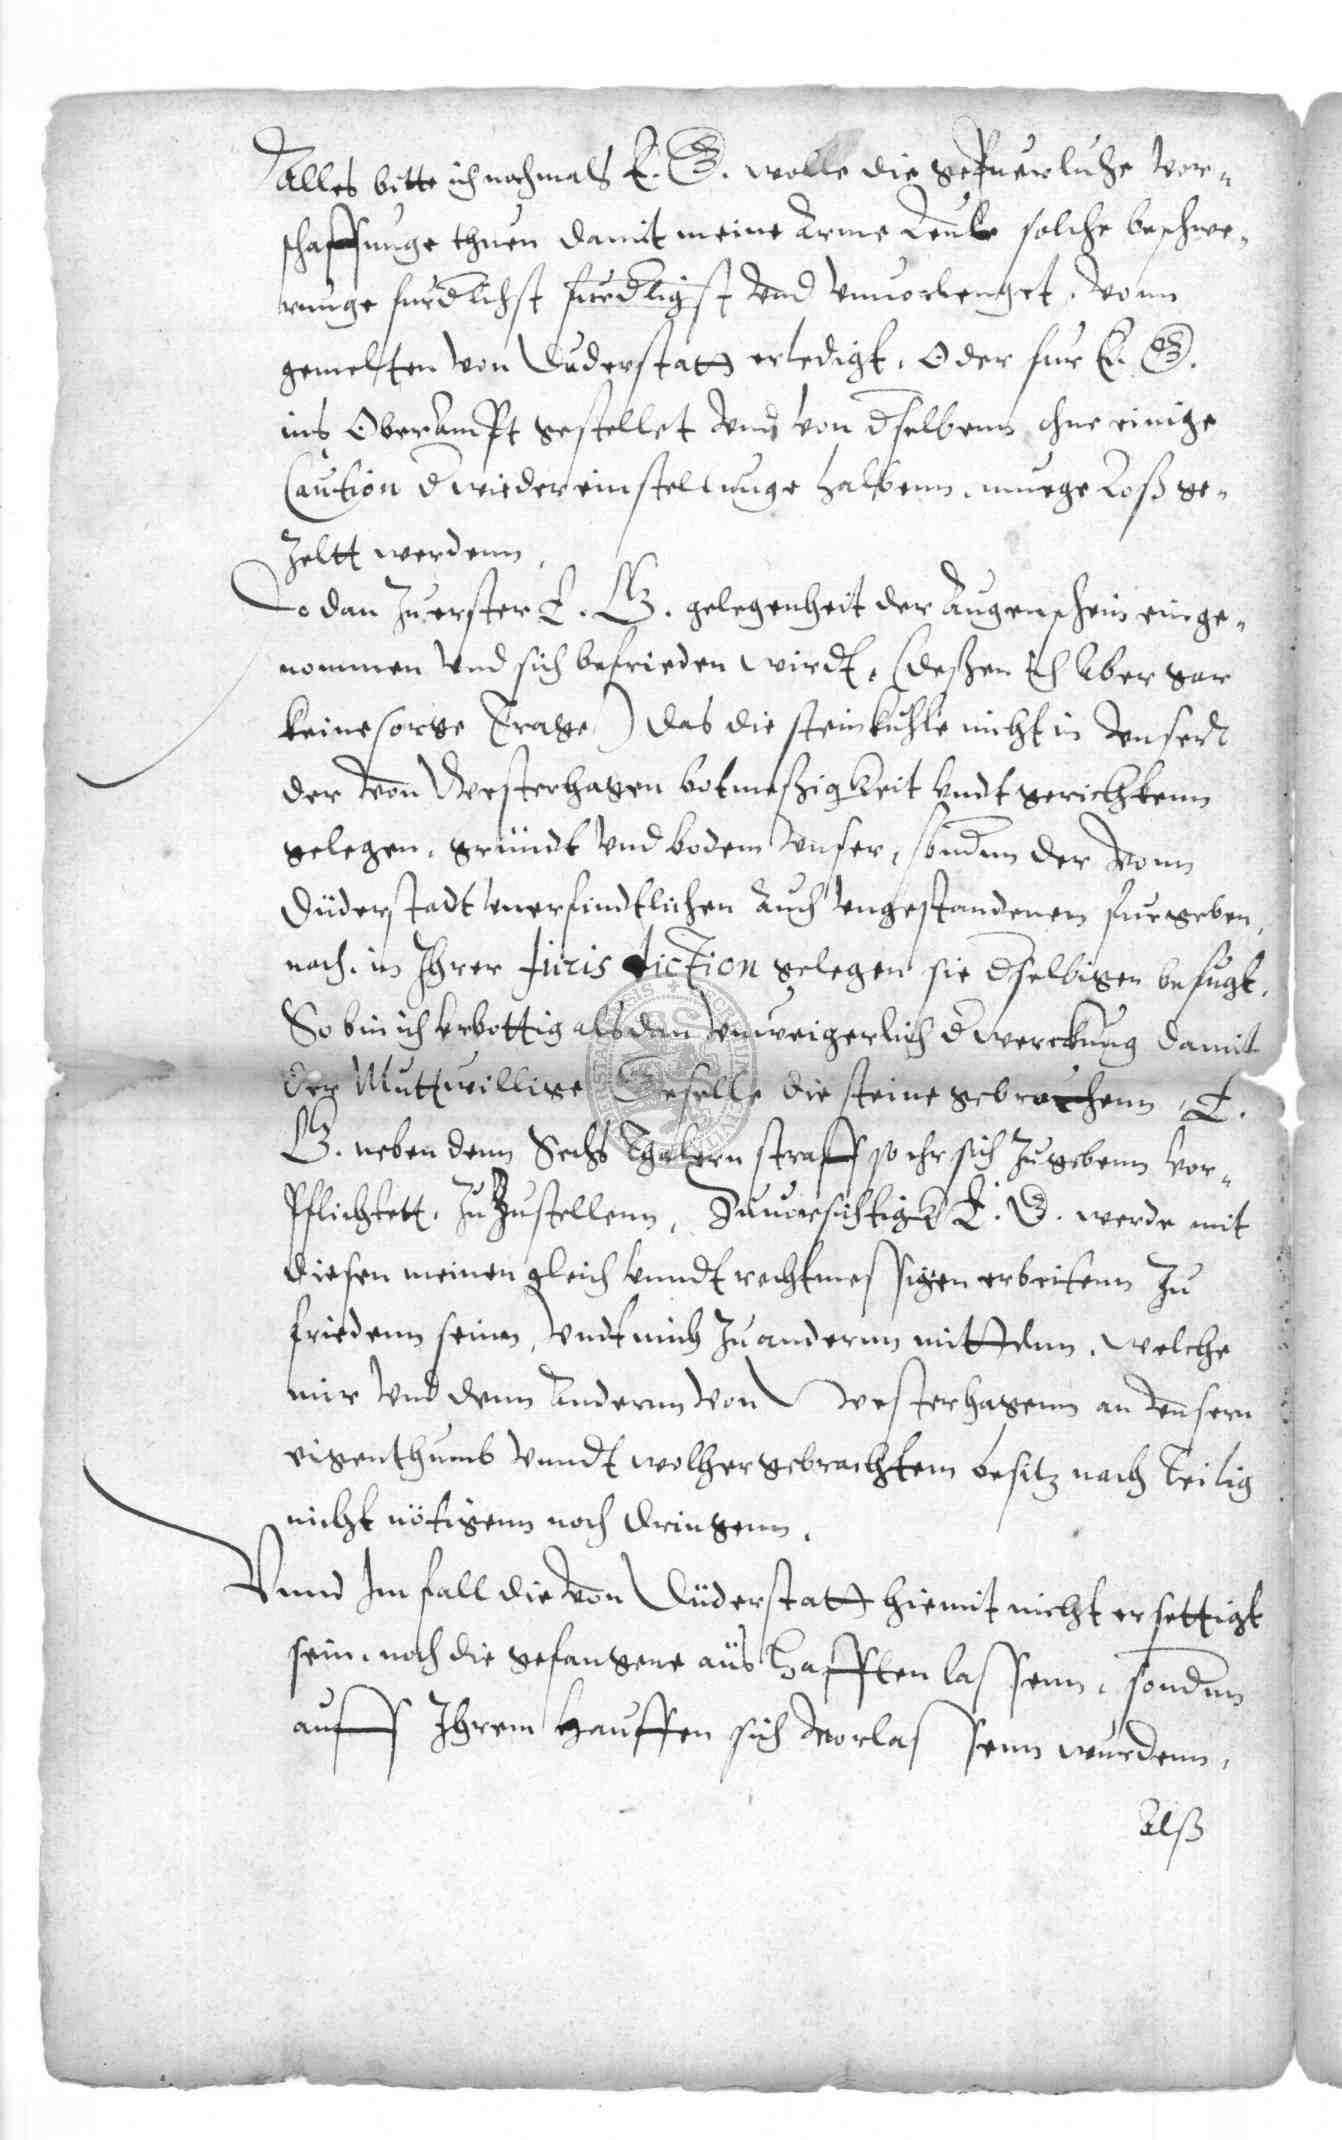 Alles bitte ich nochmals E. G. wolle die gepuerliche vor-
schaffunge thuen damit meine Arme Leute solche beschwe-
runge furdlichst furdligst vnd vnuorlenget, vonn
gemelten von Duderstatt erledigt, Oder fur E. G.
ins OberAmpt gestellet vnd von dselbenn ohne einige
Caution d wiedereinstellunge halbenn, muege Loß ge-
zeltt werdenn,
So dan zu erster E. G. gelegenheit der Augenschein einge-
nommen vnd sich befrieden wirdt, (deßen ich Aber gar
keine sorge Trage) das die steinkuhle nicht in vnser
der von Westerhagen botmeßigkeit vndt gerichtenn
gelegen, gründt vnd bodem vnser, sondern der vonn
Düderstadt vnerfindtlichen Auch vngestandenem furgeben,
nach, in Ihrer Jurisdiction gelegen sie dselbigen befugt,
So bin ich erbottig alsdan vnweigerlich d werckzeug damit
der Muttwillige Geselle die steine gebrochenn, E.
G. neben denn Sechs Thalern straff so ehr sich zu gebenn vor-
Pflichtett, zu Zustellenn, Zuuorsichtig E. G. werde mit
diesen meinen gleich vnndt rechtmessigen erbietenn zu
friedenn seinn, vndt mich zu anderun mitteln, welche
mir vnd denn Anderun von Westerhagenn an vnsern
eigenthumb vnndt wolhergebrachtem besitz nach Teilig
nicht nötigenn noch dringenn,
Vnnd Im fall die von Düderstatt hiemit nicht ersettigt
sein, noch die gefangene aus Hafften lassenn, sondern
auff Ihrem Hauffen sich vorlassenn wurdenn,
Alß